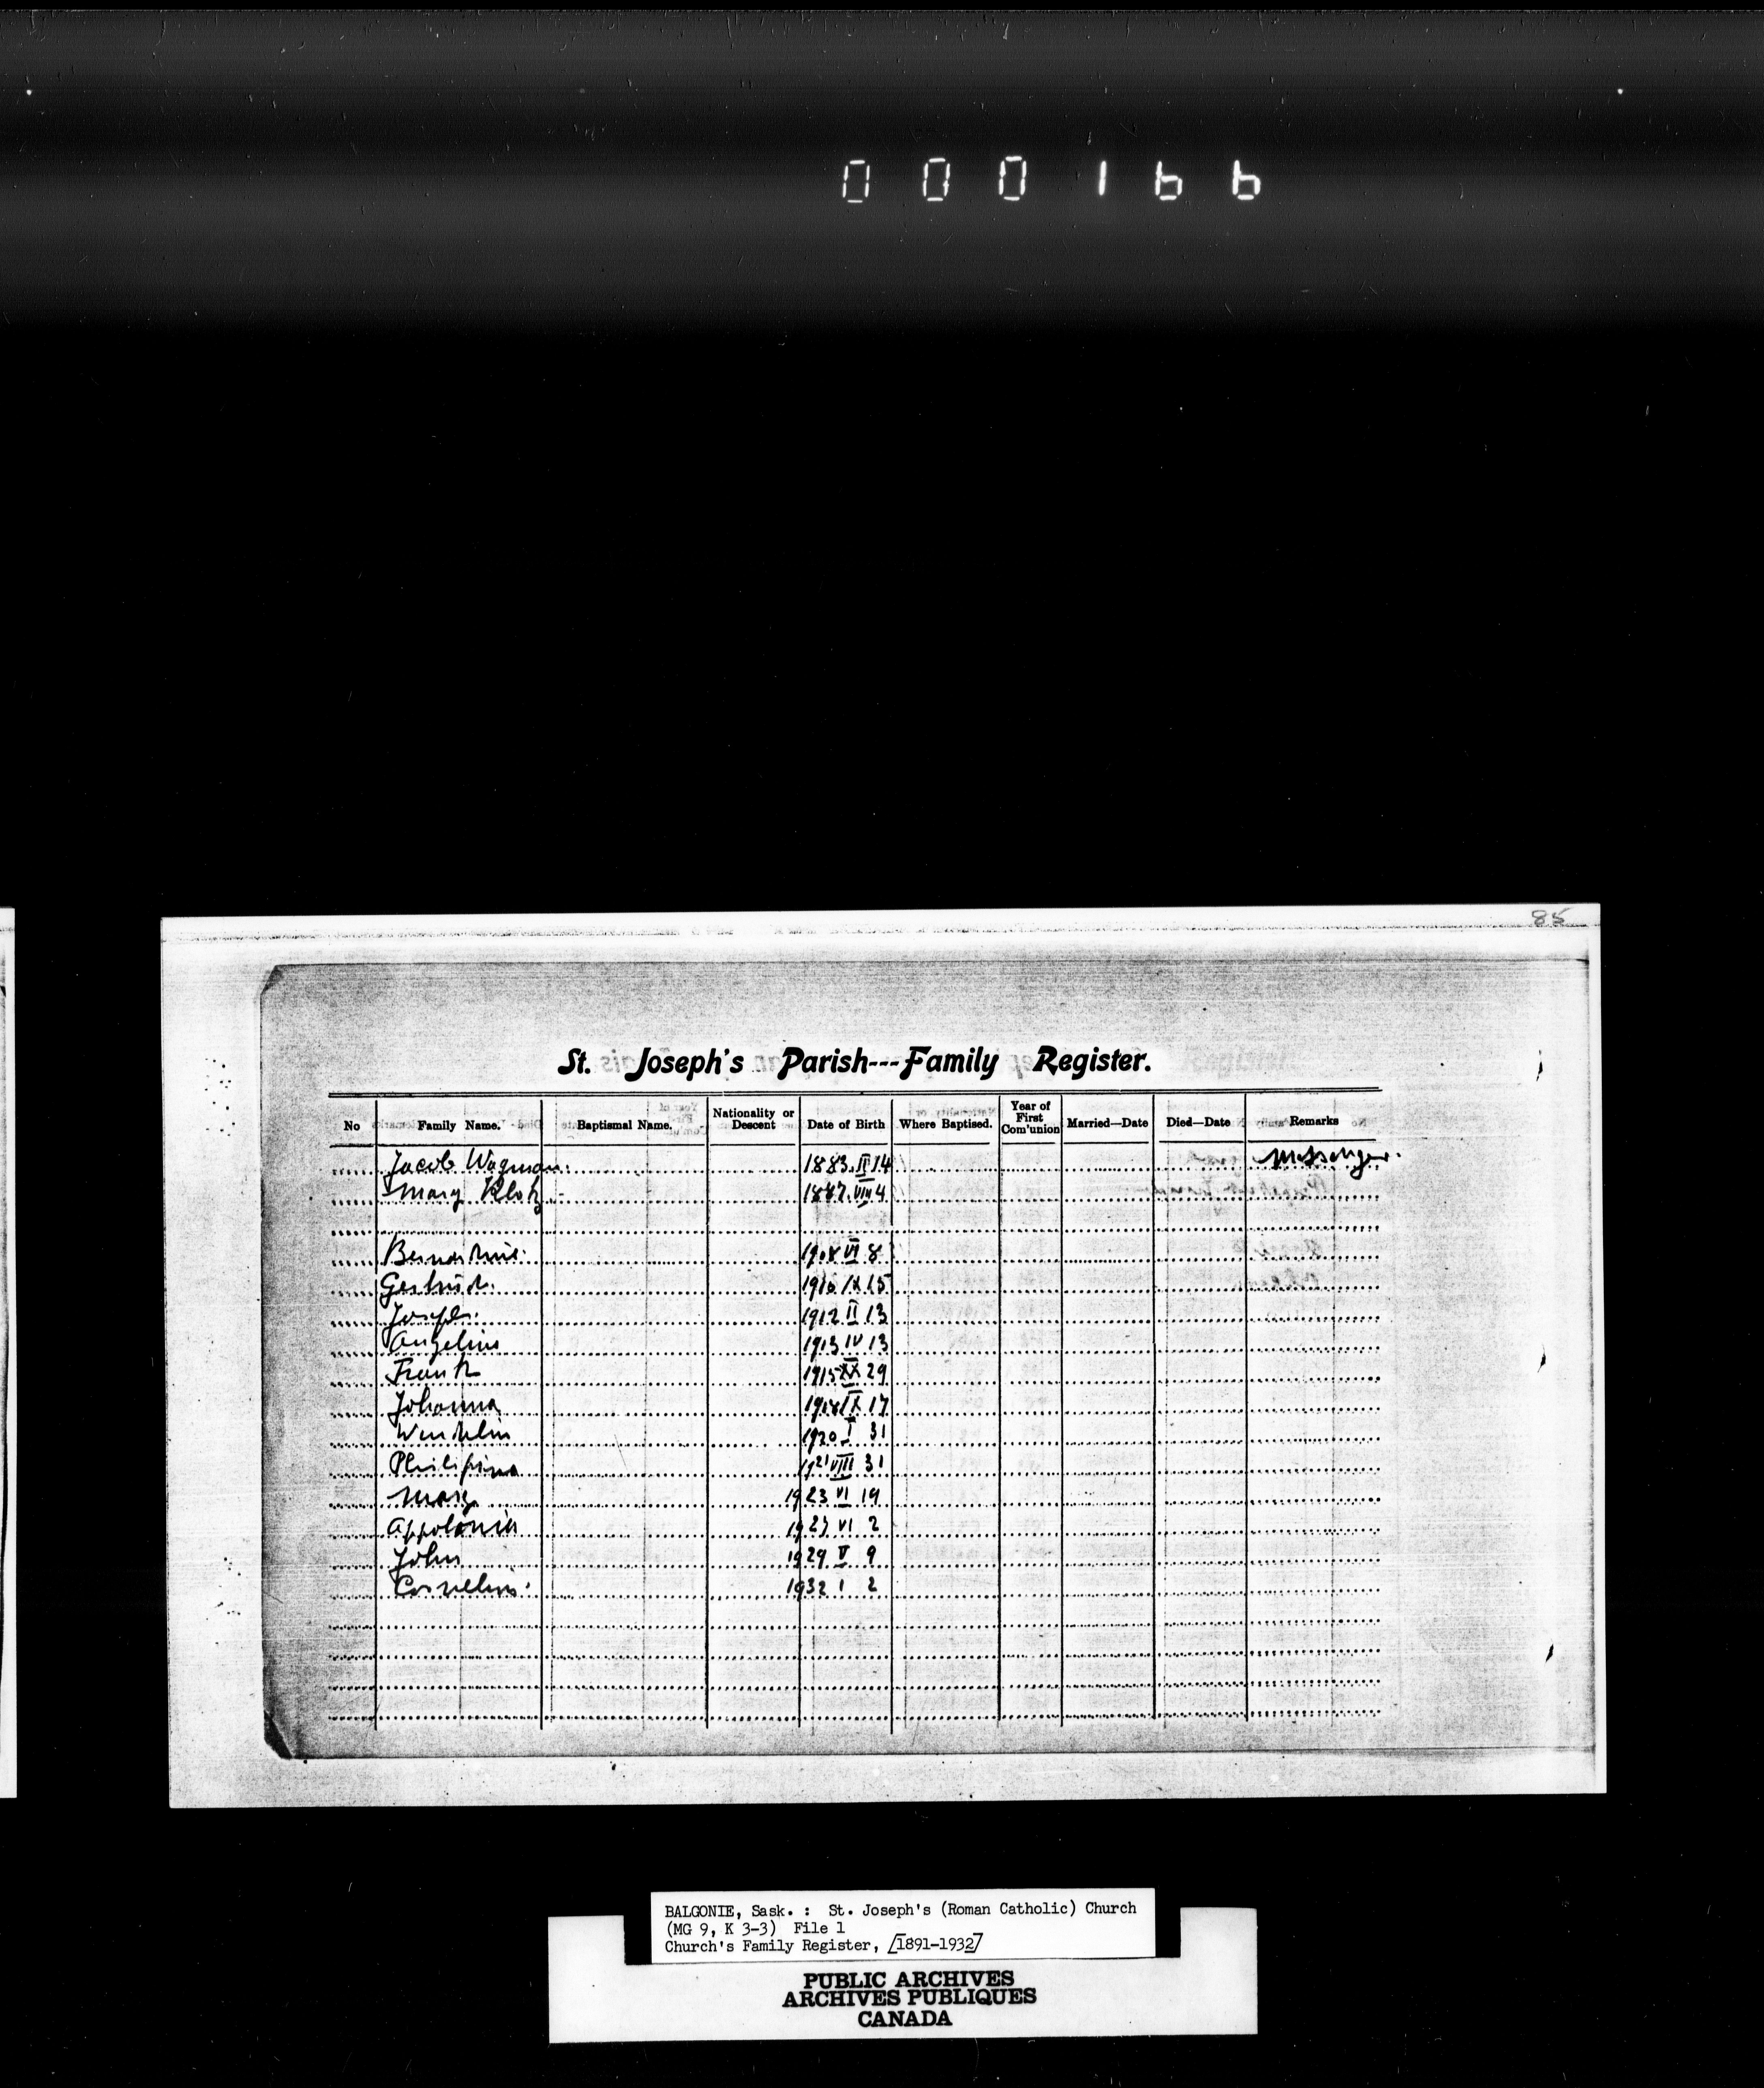 000166
85
St. Joseph's Parish---Family Register.
No Family Name. Baptismal Name. Nationality or Descent Date of Birth Where Baptised. Year of First Com'union Married—Date Died—Date Remarks
Jacob Wagman. 1883 II 14 Messenger.
Mary Klotz 1887 VIII 4
Bernardine. 1908 VI 8
Gertrude. 1910 IX 15
Joseph. 1912 II 13
Angelina 1913 IV 13
Frank 1915 29
Johanna 1918 IX 17
Wendelin 1920 I 31
Philipina 1921 VIII 31
Mary 1923 VI 19
Appolonia 1927 VI 2
John 1929 V 9
Cornelius. 1932 I 2
BALGONIE, Sask. : St. Joseph's (Roman Catholic) Church
(MG 9, K 3-3) File 1
Church's Family Register, [1891-1932]
PUBLIC ARCHIVES
ARCHIVES PUBLIQUES
CANADA